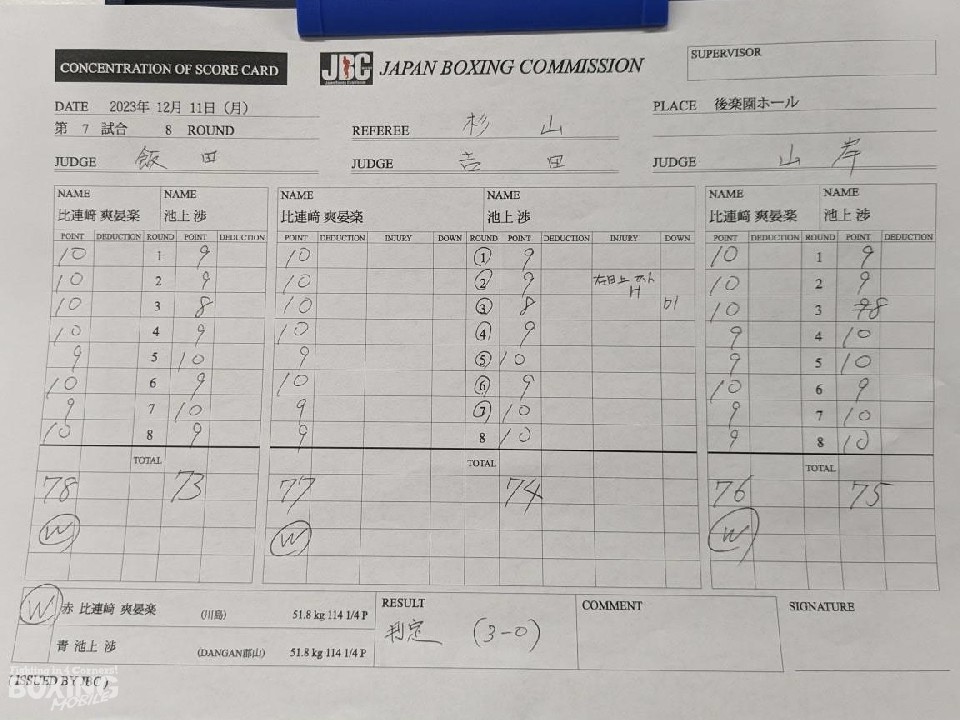 CONCENTRATION OF SCORE CARD
JBC JAPAN BOXING COMMISSION
SUPERVISOR
DATE 2023年 12月 11日 (月)
PLACE 後楽園ホール
第 7 試合 8 ROUND
REFEREE 杉山
JUDGE 飯田 JUDGE 吉田 JUDGE 山岸
NAME NAME NAME NAME NAME NAME
比連﨑 爽晏楽 池上 渉 比連﨑 爽晏楽 池上 渉 比連﨑 爽晏楽 池上 渉
POINT DEDUCTION ROUND POINT DEDUCTION POINT DEDUCTION INJURY DOWN ROUND POINT DEDUCTION INJURY DOWN POINT DEDUCTION ROUND POINT DEDUCTION
10 1 9 10 1 9 10 1 9
10 2 9 10 2 9 10 2 9
10 3 8 10 3 8 10 3 8
10 4 9 10 4 9 9 4 10
9 5 10 9 5 10 9 5 10
10 6 9 10 6 9 10 6 9
9 7 10 9 7 10 9 7 10
10 8 9 9 8 10 9 8 10
TOTAL TOTAL TOTAL
78 73 77 74 76 75
W W W
W 赤 比連﨑 爽晏楽 (川島) 51.8 kg 114 1/4 P
青 池上 渉 (DANGAN郡山) 51.8 kg 114 1/4 P
RESULT
判定 (3-0)
COMMENT
SIGNATURE
(ISSUED BY JBC)
Fighting in 4 Corners!
BOXING
MOBILE